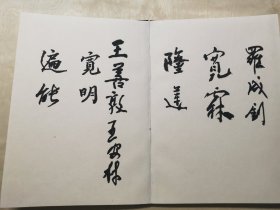 羅成剑
寬霖
隆蓮
王善敦 王安林
寬明
遍能